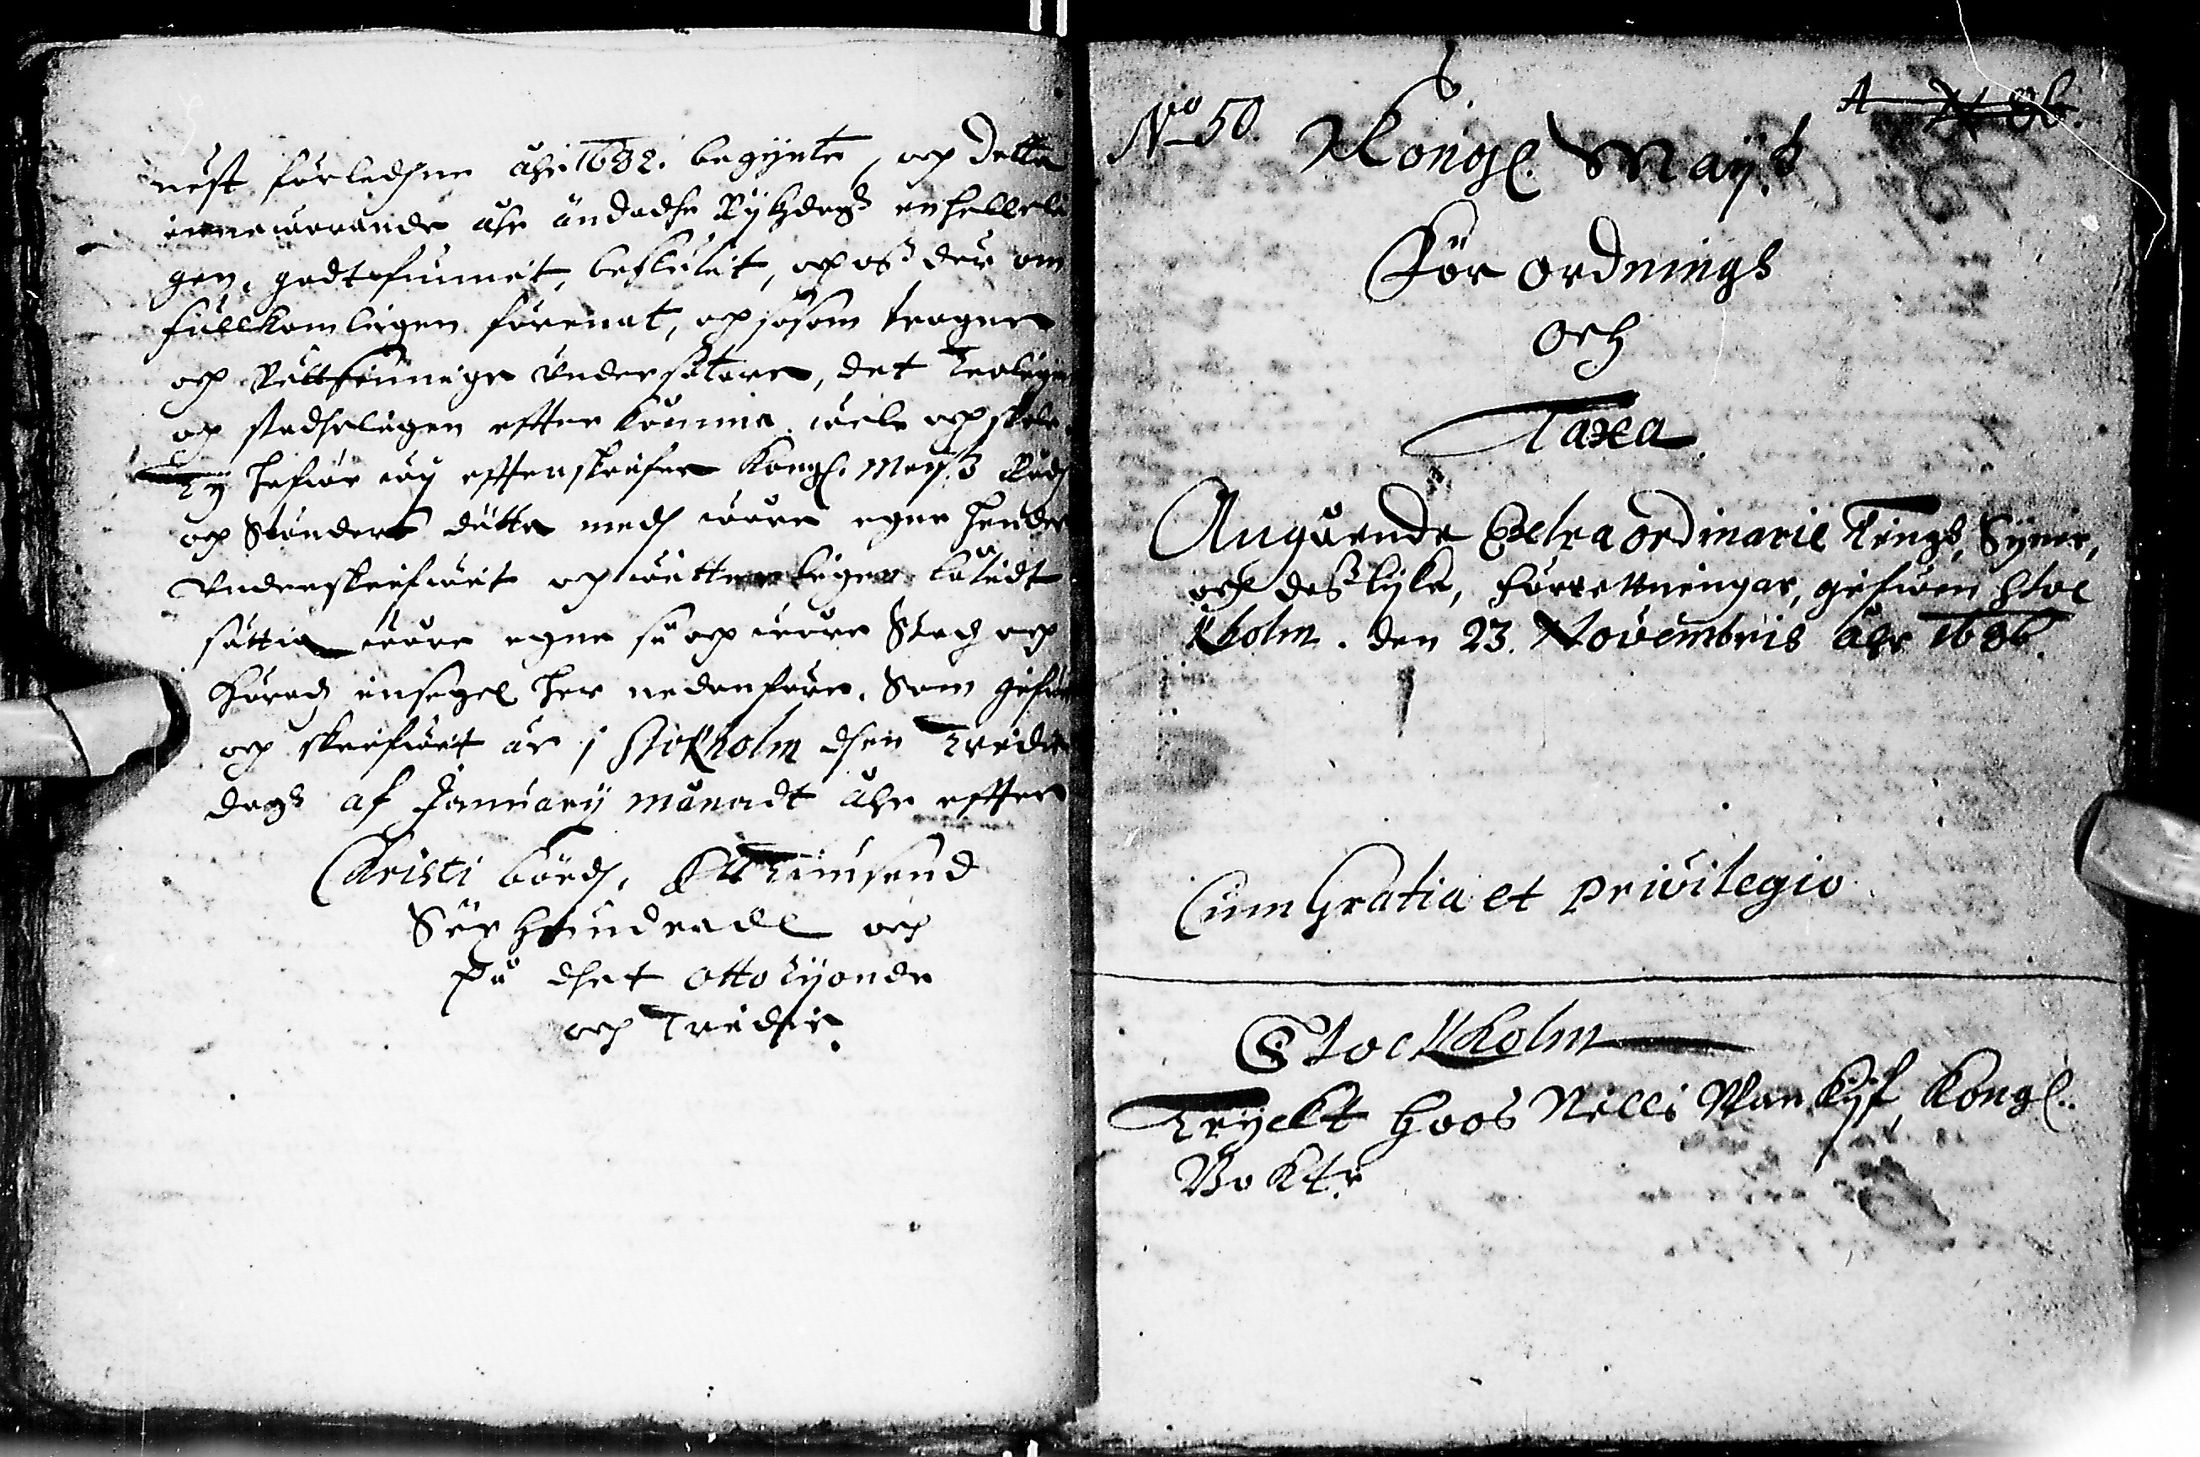 nest förledhne åhr 1682. begynte, och detta
innewarande åhr ändadhe Rijkzdagh enhellele
gen, godtfunnit, beslutit, och oß der om
fullkomligen förenat, och såsom trogne
och Rättsinnige Undersåtare, det troligen
och stadheligen effter komma wele och skole.
Ty hafwe wij efftterskrefne Kongl. Maij:tz Rådh
och Ständer detta medh wåre egne hender
underskrifwit och witterligen låtidt
sättia wåre egne så och wåre Stadz och
Häradz insegel her nedanföre. Som gifwit
och skrifwit är j Stokholm dhen Tridie
dagh af January månadt åhr effter
Christi bördh, Ett Tusend
Sex hundrade och
på dhet ottotijonde
och Tridie.
No 50.
Kongl. Maij:tz
För ordnings
och
Taxa
Angående Extra ordinarie Tings, Syner,
och deßlijke, förrettningar, gifwen Stoc
kholm. den 23. Novembris åhr 1686.
Cum Gratia et privilegio
Stockholm
Tryckt hoos Nills Wankijf, Kongl.
Boktr